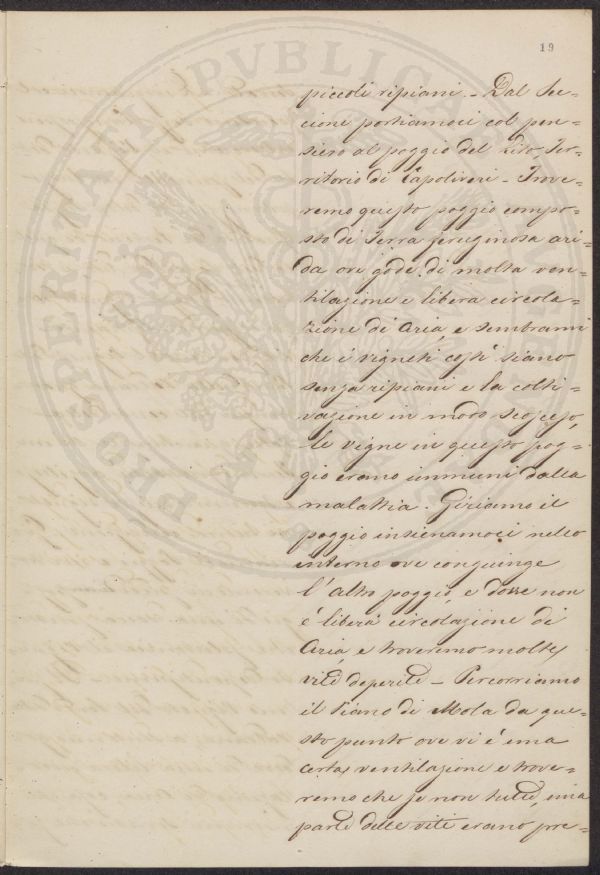 19
piccoli ripiani. - Dal Sec=
cione portiamoci col pen=
siero al poggio del Lito Ter=
ritorio di Capoliveri - Trove=
remo questo poggio compo=
sto di Terra feruginosa ari=
da ove gode di molta ven=
tilazione e libera circola=
zione di Aria, e sembrami
che i vigneti costì siano
senza ripiani e la colti=
vazione in modo scosceso,
le vigne in questo pog=
gio erano immuni dalla
malattia. Giriamo il
poggio insenamoci nello
interno ove congiunge
l'altro poggio, e dove non
è libera circolazione di
Aria, e troveremo molte
viti deperite - Percorriamo
il Piano di Mola da que=
sto punto ove vi è una
certa ventilazione e trove=
remo che se non tutte, una
parte delle viti erano pre=
PROSPERITATI PVBLICAE